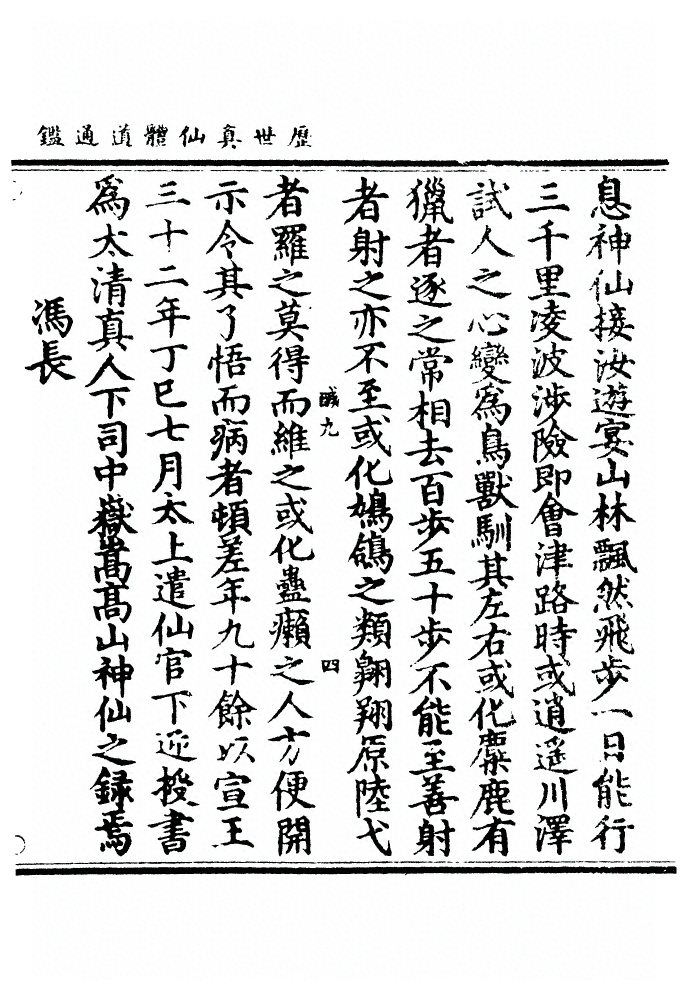 歷世真仙體道通鑑
息神仙接汝遊宴山林飄然飛步一日能行
三千里凌波涉險即會津路時或逍遥川澤
試人之心變爲鳥獸馴其左右或化麋鹿有
獵者逐之常相去百步五十步不能至善射
者射之亦不至或化鳩鴿之類翱翔原陸弋
鹹九
四
者羅之莫得而維之或化蠱癩之人方便開
示令其了悟而病者頓差年九十餘以宣王
三十二年丁巳七月太上遣仙官下迎授書
爲太清真人下司中嶽嵩髙山神仙之録焉
馮長